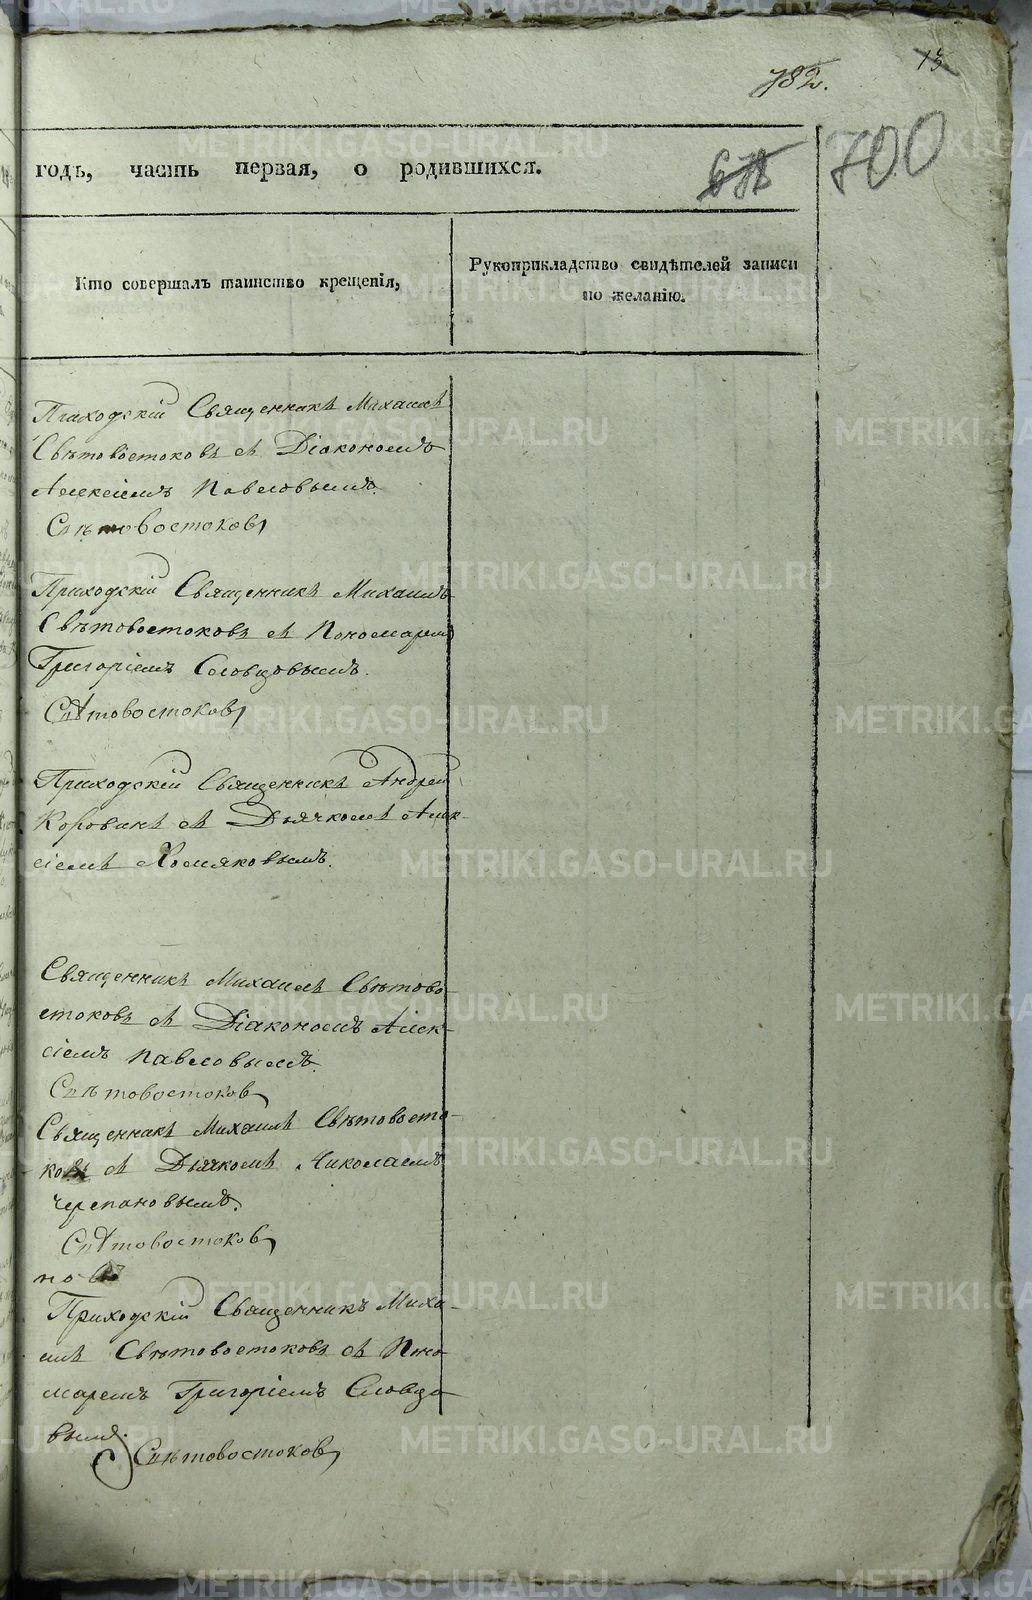 13
782.
700
годъ, часть первая, о родившихся.
Кто совершалъ таинство крещенія,
Рукоприкладство свидѣтелей записи
по желанію.
Приходскій Священникъ Михаилъ
Свѣтовостоковъ съ Діакономъ
Алексіемъ Павловымъ.
Свѣтовостоковъ
Приходскій Священникъ Михаилъ
Свѣтовостоковъ съ Пономаремъ
Григоріемъ Словцовымъ.
Свѣтовостоковъ
Приходскій Священникъ Андрей
Коровинъ съ Дьячкомъ Алек-
сіемъ Хомяковымъ.
Священникъ Михаилъ Свѣтово
стоковъ съ Діакономъ Алек-
сіемъ Павловымъ.
Свѣтовостоковъ
Священникъ Михаилъ Свѣтовосто-
ковъ съ Дьячкомъ Николаемъ
Черепановымъ.
Свѣтовостоковъ
Приходскій Священникъ Миха-
илъ Свѣтовостоковъ съ Поно
маремъ Григоріемъ Словцо
вымъ.
Свѣтовостоковъ
METRIKI.GASO-URAL.RU